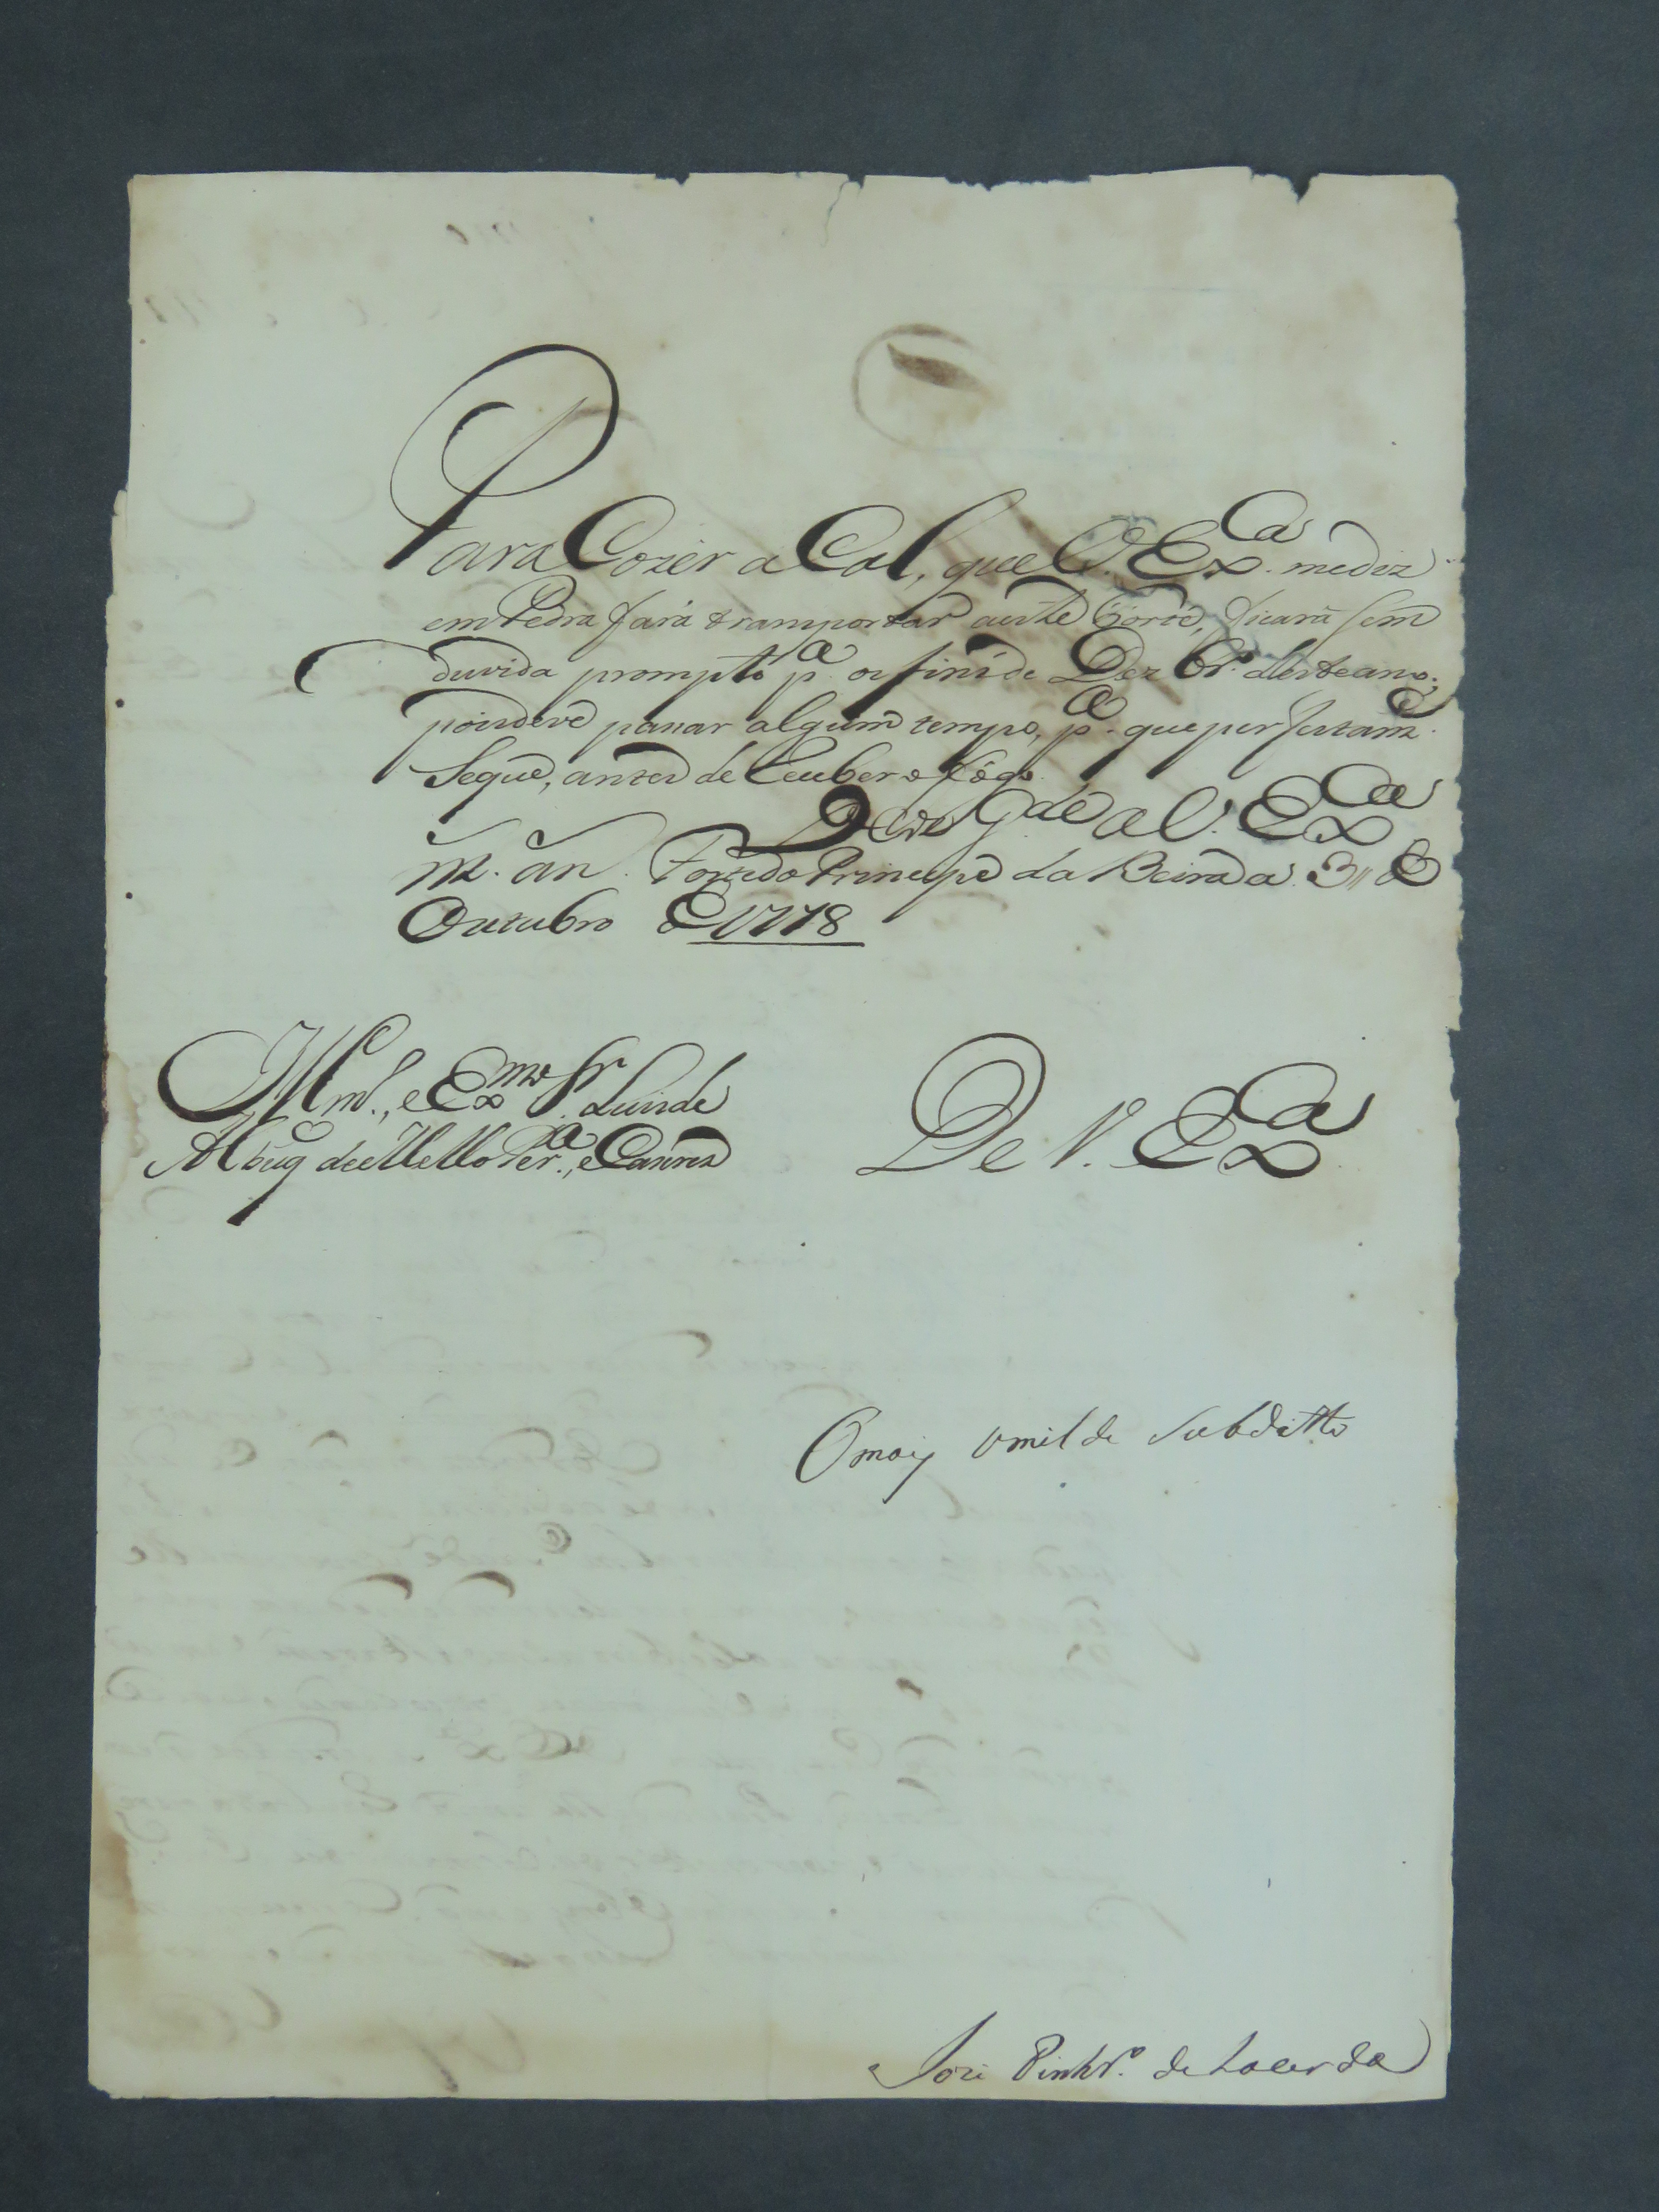 Para Cozer a Cal, que V. Ex.ª me diz
em Pedra fará transportar a este Forte, ficará sem
duvida prompto p.ª os fins de Dezbr.º deste ano;
pois deve passar algum tempo, p.ª que perfeitam.e
seque, antes de receber o fogo.
Deos g.de a V. Ex.ª
m. an. Forte do Principe da Beira a 3 de
Outubro de 1778
Illm.º, e Exmo Sr. Luis de
Albuq de Mello Per.ª, e Caceres
De V. Ex.ª
O mais umilde Subditto
Joze Pinhr.º de Lacerda